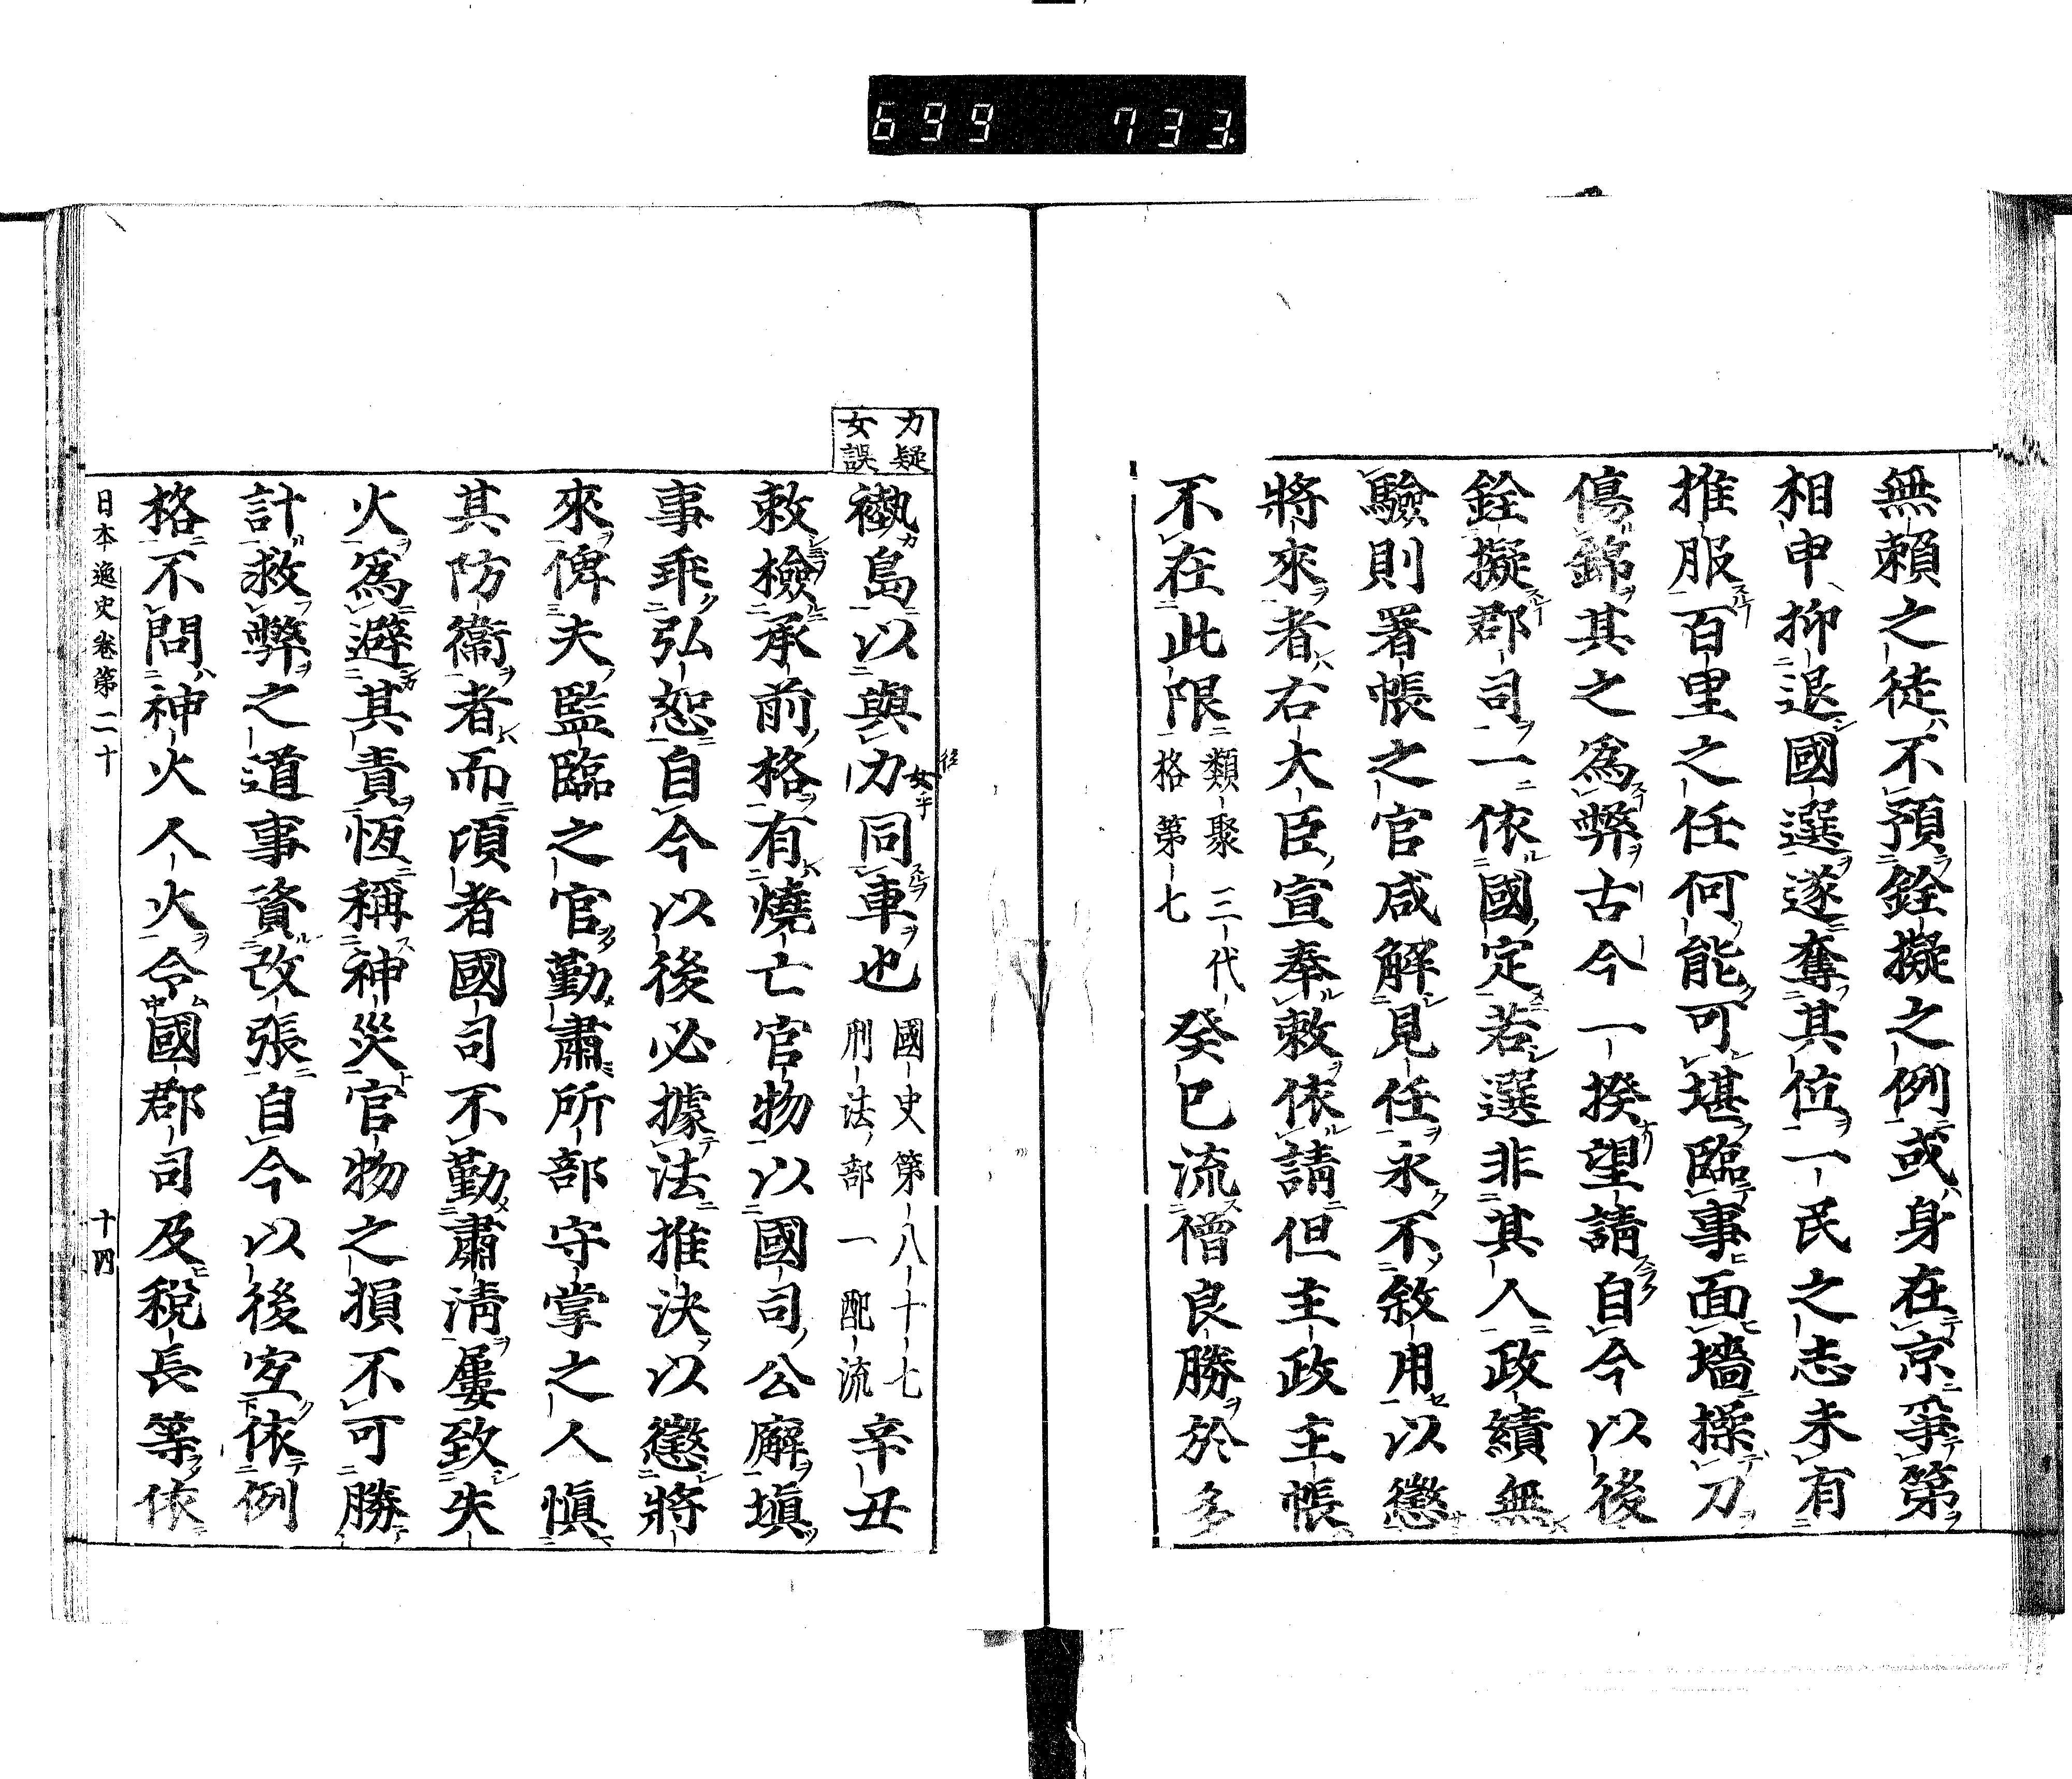 699 733.
無賴之徒不預銓擬之例或身在京爭第
相申抑退國選遂奪其位一民之志未有
推服百里之任何能可堪臨事面墻操刀
傷錦其之爲弊古今一揆望請自今以後
銓擬郡司一依國定若選非其人政績無
驗則署帳之官咸解見任永不敘用以懲
將來者右大臣宣奉敕依請但主政主帳
不在此限類聚三代格第七 癸巳流僧良勝於多
力疑女誤
褹島以與力同車也國史第八十七刑法部一配流 辛丑
女乎
敕檢承前格有燒亡官物以國司公廨塡
事乖弘恕自今以後必據法推決以懲將
來俾夫監臨之官勤肅所部守掌之人愼
其防衞者而頃者國司不勤肅淸屢致失
火爲避其責恆稱神災官物之損不可勝
計救弊之道事資改張自今以後宜依例
格不問神火人火令國郡司及稅長等依
日本逸史卷第二十 十四